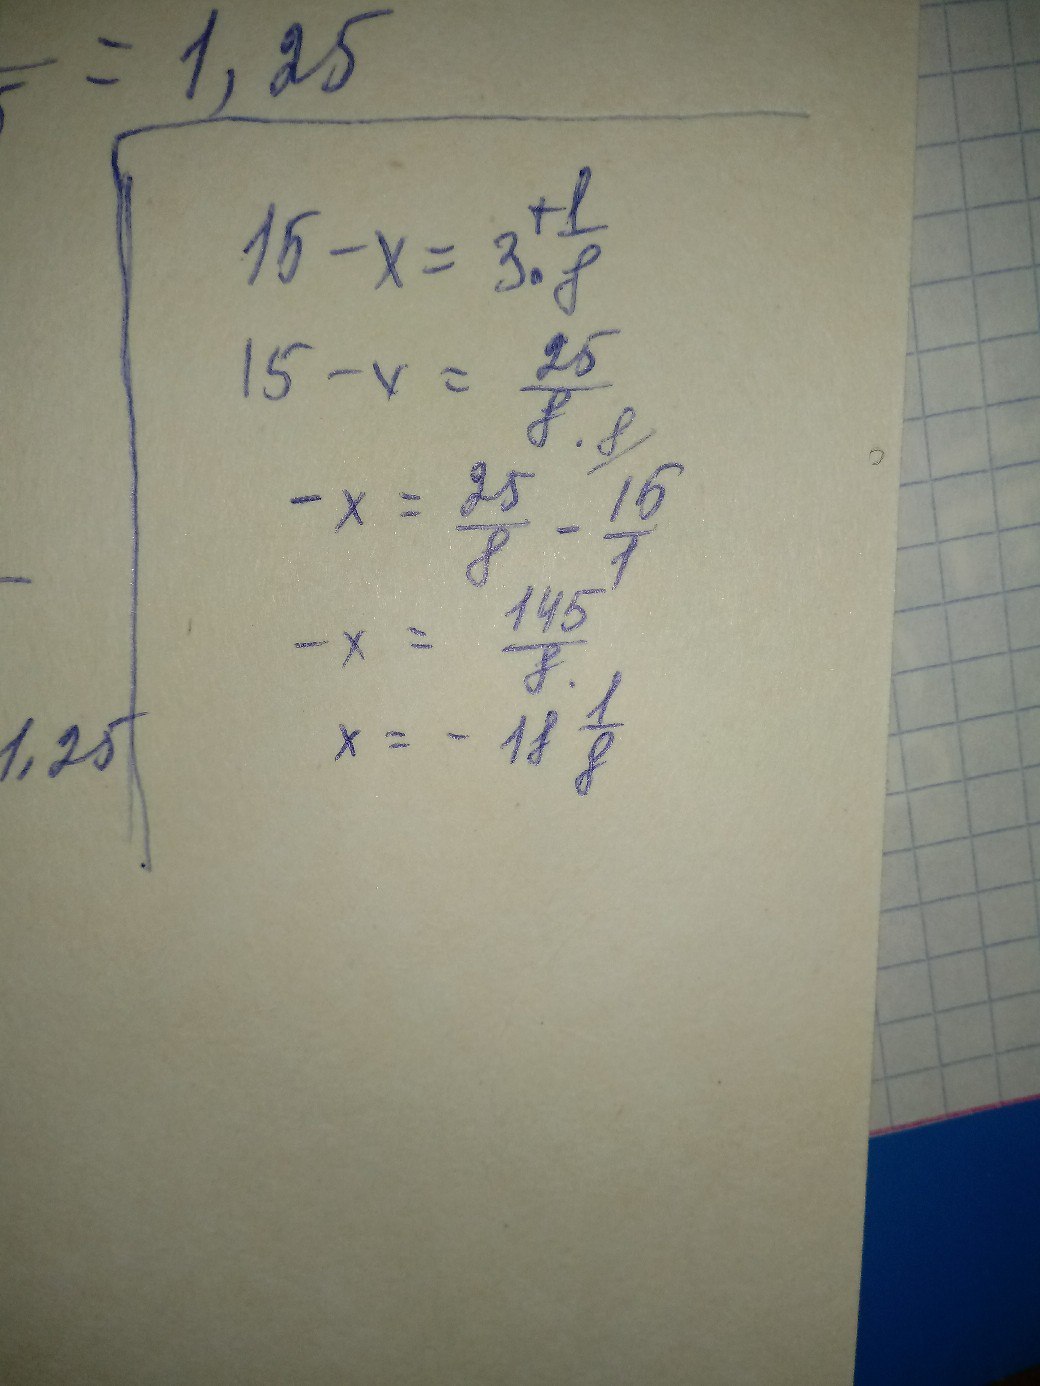 = 1,25
15 - x = 3 · + 1/8
15 - x = 25/8
- x = 25/8 - 15/1 · 8/
- x = 145/8.
x = - 18 1/8
1,25